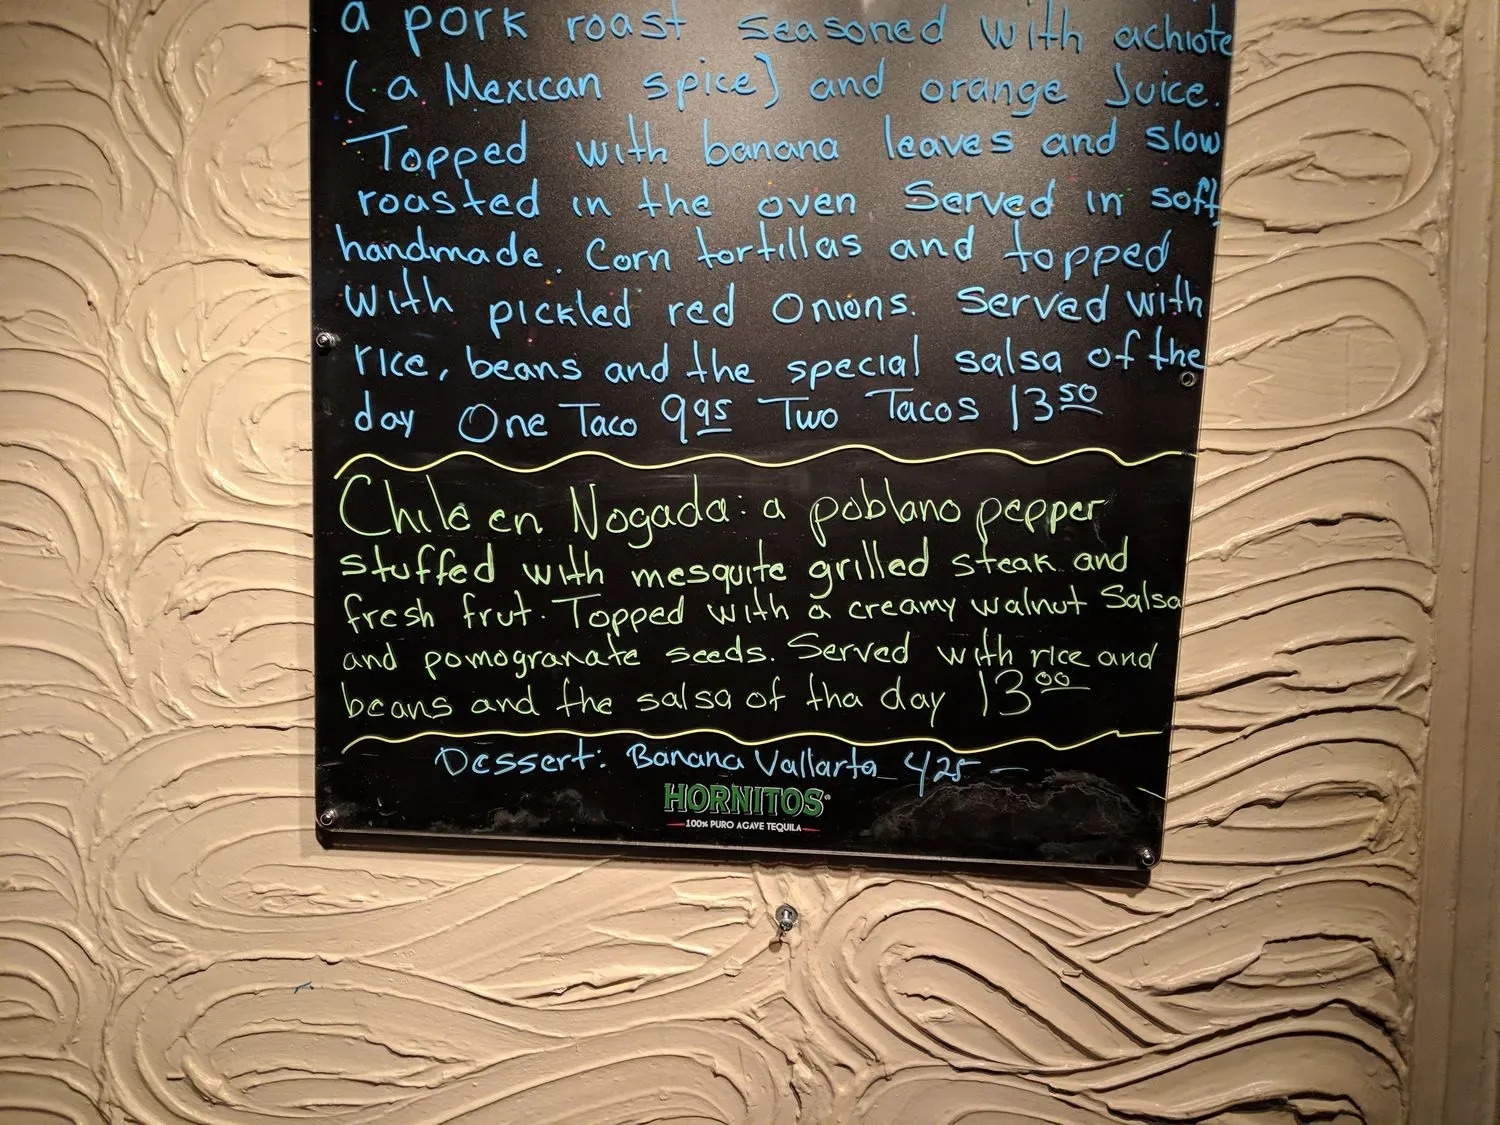 a pork roast seasoned with achiote
( a Mexican spice) and orange Juice.
Topped with banana leaves and slow
roasted in the oven Served in soft
handmade. Corn tortillas and topped
With pickled red Onions. Served with
rice, beans and the special salsa of the
day One Taco 9.95 Two Tacos 13.50
Chile en Nogada: a poblano pepper
stuffed with mesquite grilled steak and
fresh frut. Topped with a creamy walnut Salsa
and pomogranate seeds. Served with rice and
beans and the salsa of tha day 13.00
Dessert: Banana Vallarta 425 —
HORNITOS®
100% PURO AGAVE TEQUILA